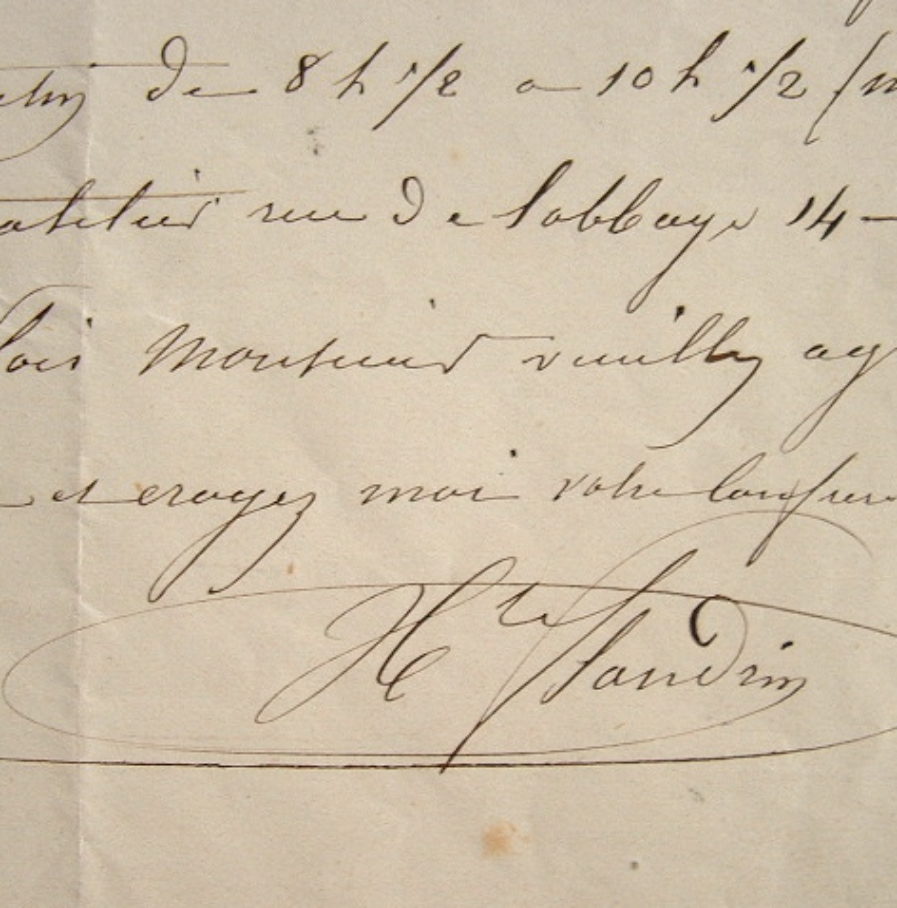 de 8 h 1/2 a 10 h 1/2 (m
atelier rue de l'abbaye 14 —
fois Monsieur veuillez ag
et croyez moi votre confrer
Hte flandrin